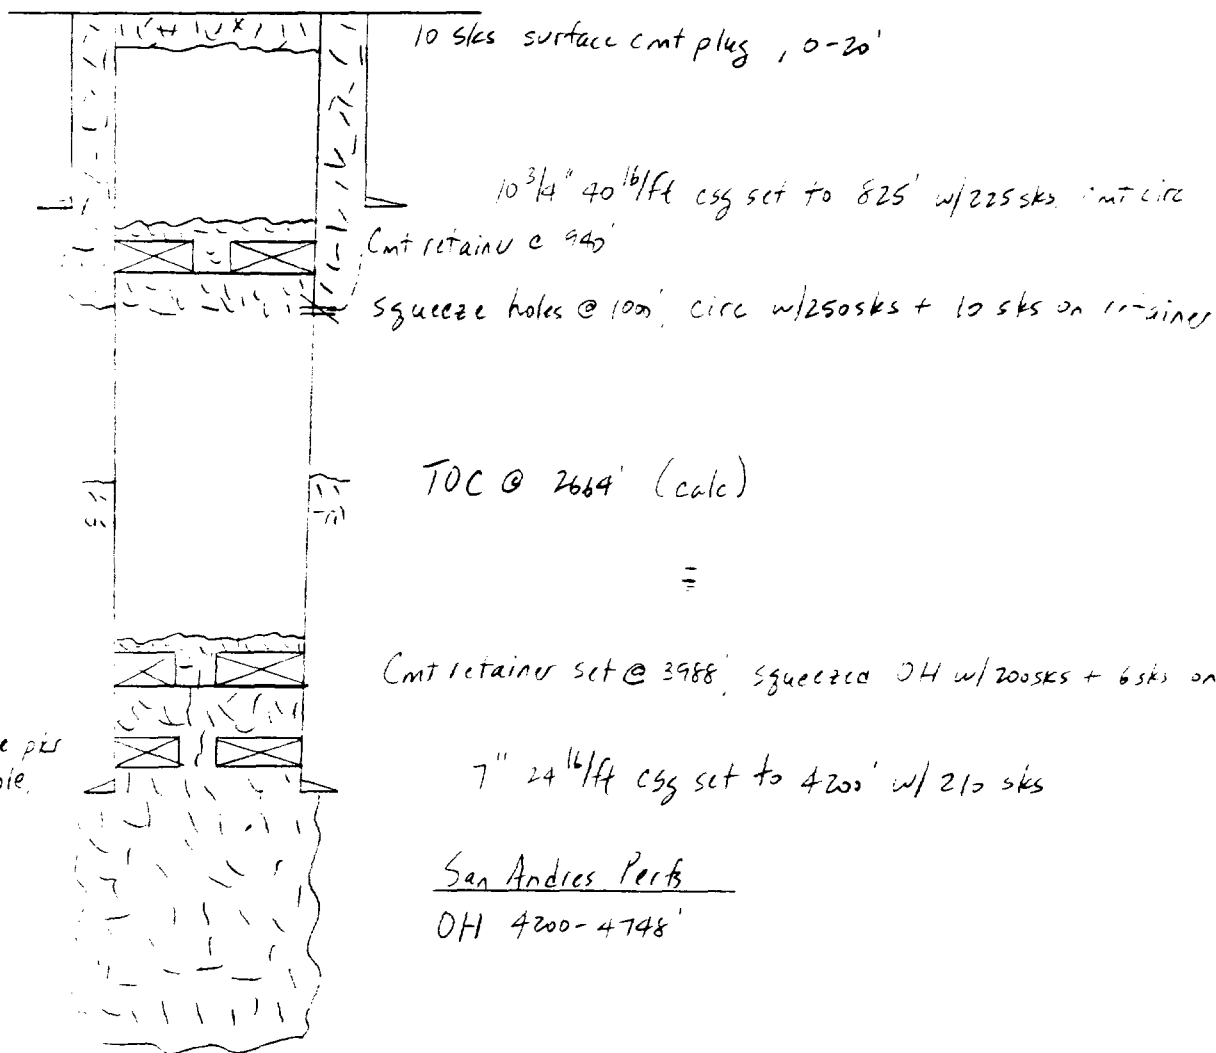 10 sks surface cmt plug, 0-20'
10 3/4" 40 lb/ft csg set to 825' w/225 sks. cmt circ
Cmt retainer @ 940'
squeeze holes @ 1000'. circ w/250sks + 10 sks on retainer
TOC @ 2664' (calc)
Cmt retainer set @ 3988', squeezed OH w/200sks + 6 sks on
7" 24 lb/ft csg set to 4200' w/ 210 sks
San Andres Perfs
OH 4200-4748'